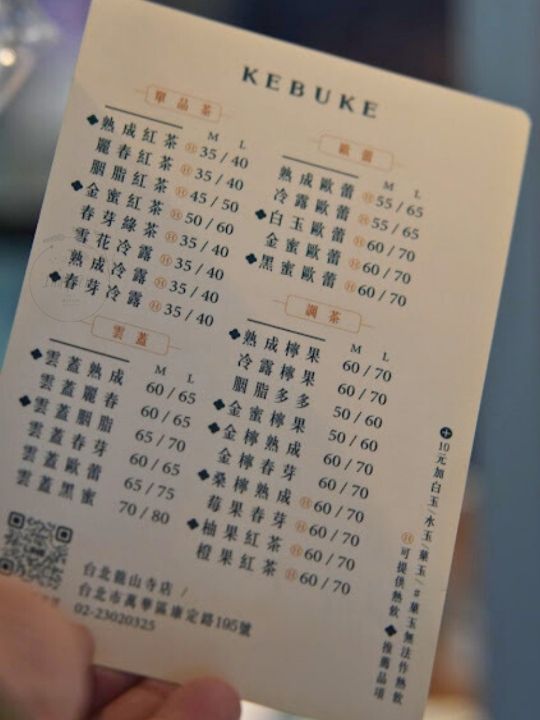 KEBUKE
單品茶
M L
◆熟成紅茶 Ⓗ35/40
麗春紅茶 Ⓗ35/40
胭脂紅茶 Ⓗ45/50
◆金蜜紅茶 Ⓗ50/60
春芽綠茶 Ⓗ35/40
雪花冷露 Ⓗ35/40
熟成冷露 Ⓗ35/40
◆春芽冷露 Ⓗ35/40
雲蓋
M L
◆雲蓋熟成 60/65
雲蓋麗春 60/65
◆雲蓋胭脂 65/70
雲蓋春芽 60/65
雲蓋歐蕾 65/75
雲蓋黑蜜 70/80
歐蕾
M L
熟成歐蕾 Ⓗ55/65
冷露歐蕾 Ⓗ55/65
◆白玉歐蕾 Ⓗ60/70
金蜜歐蕾 Ⓗ60/70
◆黑蜜歐蕾 Ⓗ60/70
調茶
M L
◆熟成檸果 60/70
冷露檸果 60/70
胭脂多多 50/60
◆金蜜檸果 50/60
◆金檸熟成 60/70
金檸春芽 60/70
◆桑檸熟成 Ⓗ60/70
莓果春芽 Ⓗ60/70
◆柚果紅茶 Ⓗ60/70
橙果紅茶 Ⓗ60/70
10元加白玉/水玉/菓玉/#菓玉無法作熱飲
Ⓗ可提供熱飲 ◆推薦品項
台北龍山寺店 /
台北市萬華區康定路195號
02-23020325